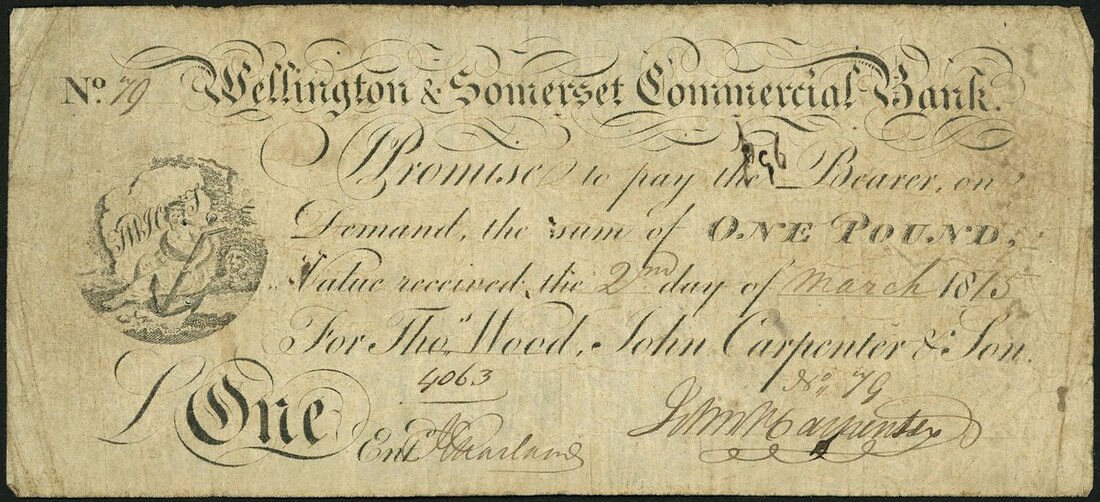 No. 79 Wellington & Somerset Commercial Bank.
I Promise to pay the Bearer, on
Demand, the sum of ONE POUND,
Value received, the 2nd day of March 1815
For Thos. Wood, John Carpenter & Son.
4063
No 79
£ One
Entd
John Carpenter